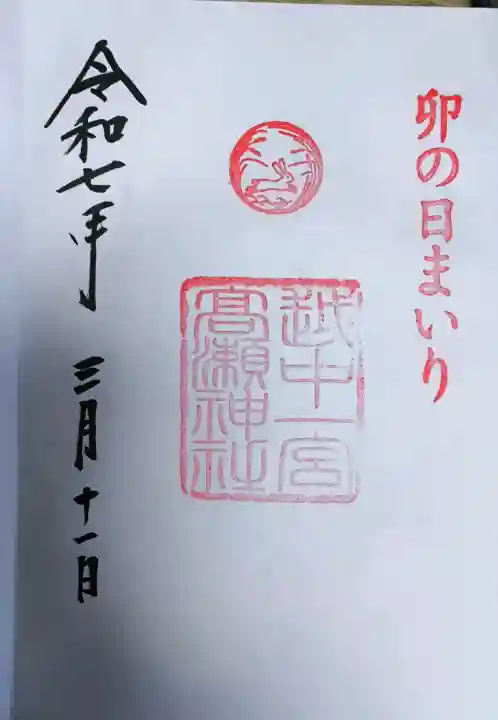 卯の日まいり
越中一宮
高瀬神社
令和七年 三月十一日